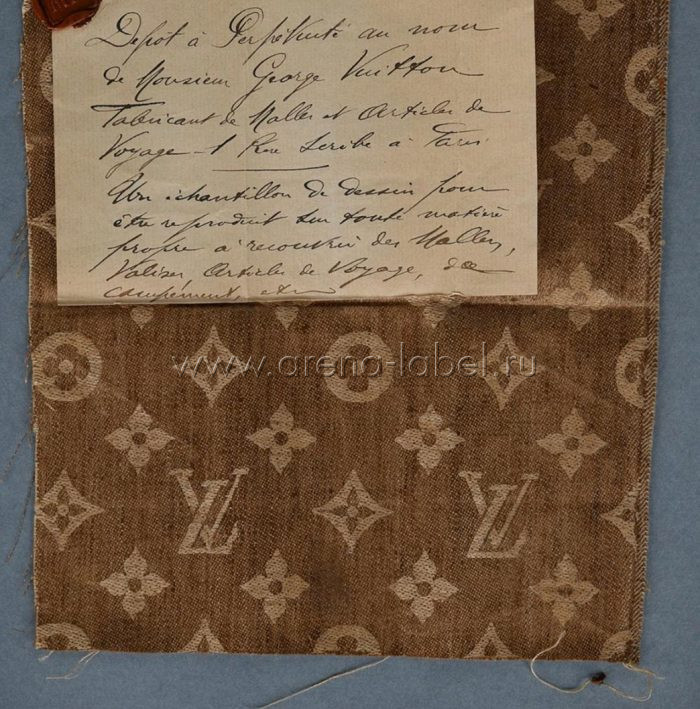 Dépot à Perpétuité au nom
de Monsieur George Vuitton
Fabricant de Malles et Articles de
Voyage 1 Rue Scribe à Paris
Un échantillon de dessin pour
être reproduit sur toute matière
propre à recouvrir des Malles,
Valises Articles de Voyage, de
campement, etc
www.arena-label.ru
LV LV